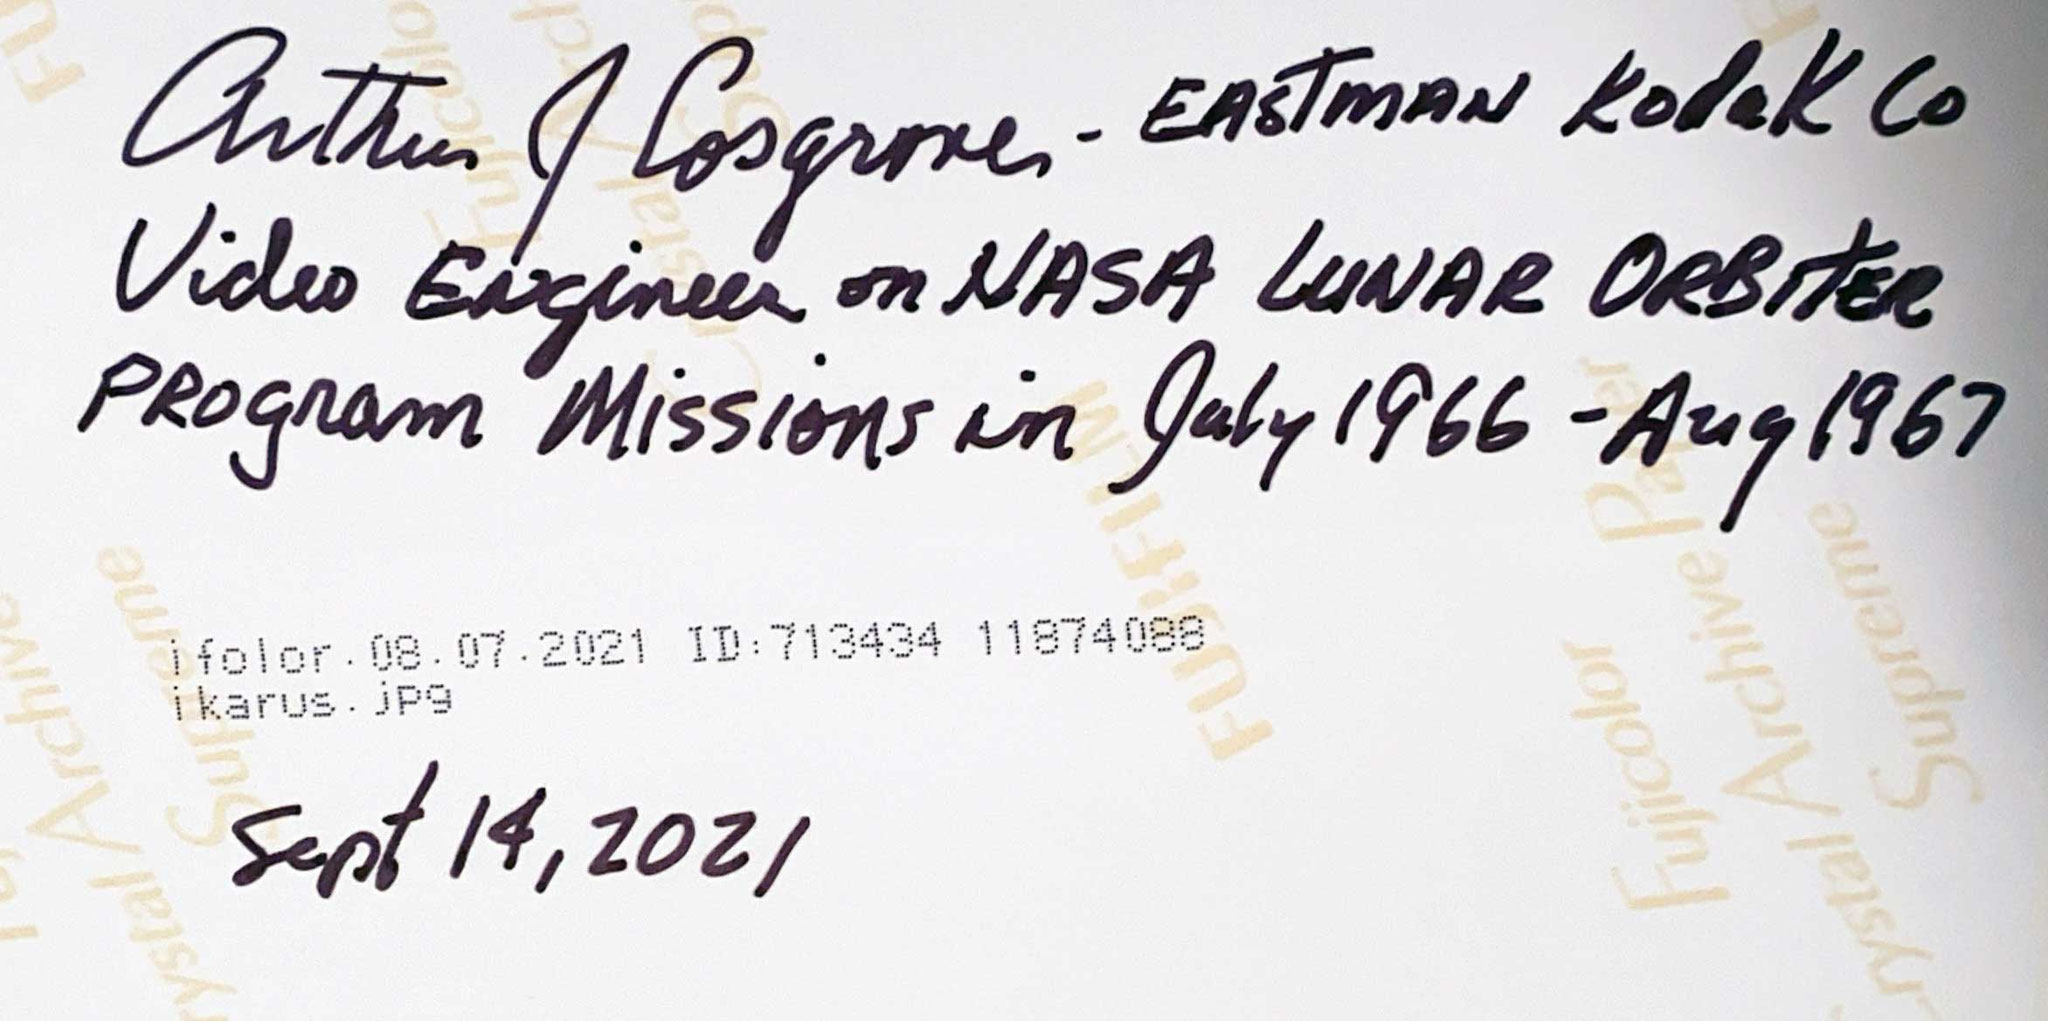 Arthur J Cosgrove - EASTMAN Kodak Co
Video Engineer on NASA LUNAR ORBITER
PROgram Missions in July 1966 - Aug 1967
ifolor.08.07.2021 ID:713434 11874088
ikarus.jpg
Sept 14, 2021
FUJIFILM
Fujicolor
Crystal Archive Paper
Supreme